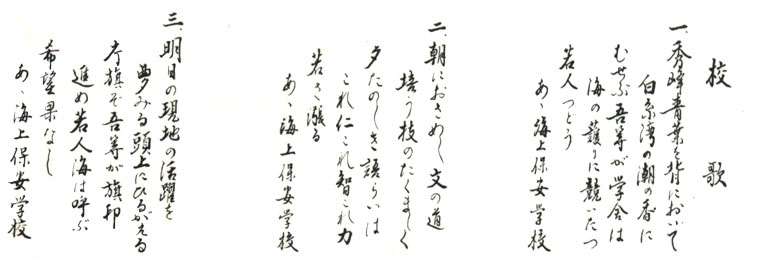 校歌
一、秀峰青葉を背において
白糸湾の潮の香に
むせぶ吾等が学舎は
海の護りに競いたつ
若人つどう
あゝ海上保安学校
二、朝におさめし文の道
培う技のたくましく
夕たのしき語らいは
これ仁これ智これ力
若さ漲る
あゝ海上保安学校
三、明日の現地の活躍を
夢みる頭上にひるがえる
庁旗ぞ吾等が旗印
進め若人海は呼ぶ
希望果なし
あゝ海上保安学校